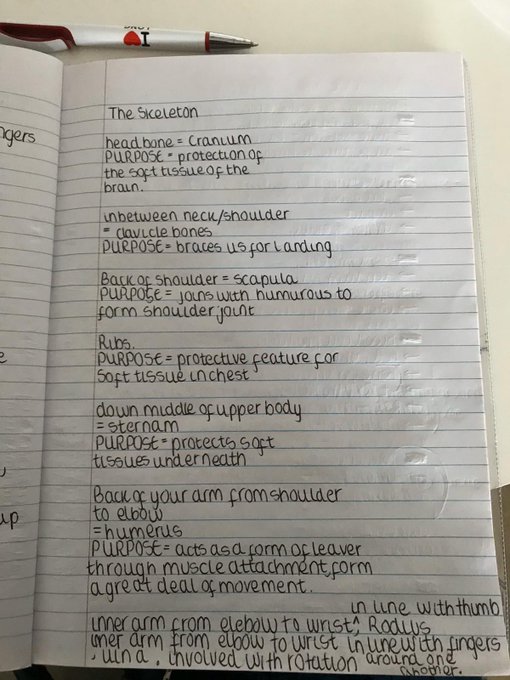 I
ngers
The Skeleton
headbone = Cranium
PURPOSE = protection of
the soft tissue of the
brain.
inbetween neck/shoulder
= clavicle bones
PURPOSE = braces us for landing
Back of shoulder = scapula
PURPOSE = joins with humurous to
form shoulder joint
Ribs.
PURPOSE = protective feature for
soft tissue in chest
down middle of upper body
= sternam
PURPOSE = protects soft
tissues underneath
Back of your arm from shoulder
to elbow
up
= humerus
PURPOSE = acts as a form of leaver
through muscle attachment, form
a great deal of movement.
in line with thumb
inner arm from elebow to wrist, ^ Radius
iner arm from elbow to wrist in line with fingers
, ulna. involved with rotation around one
another.